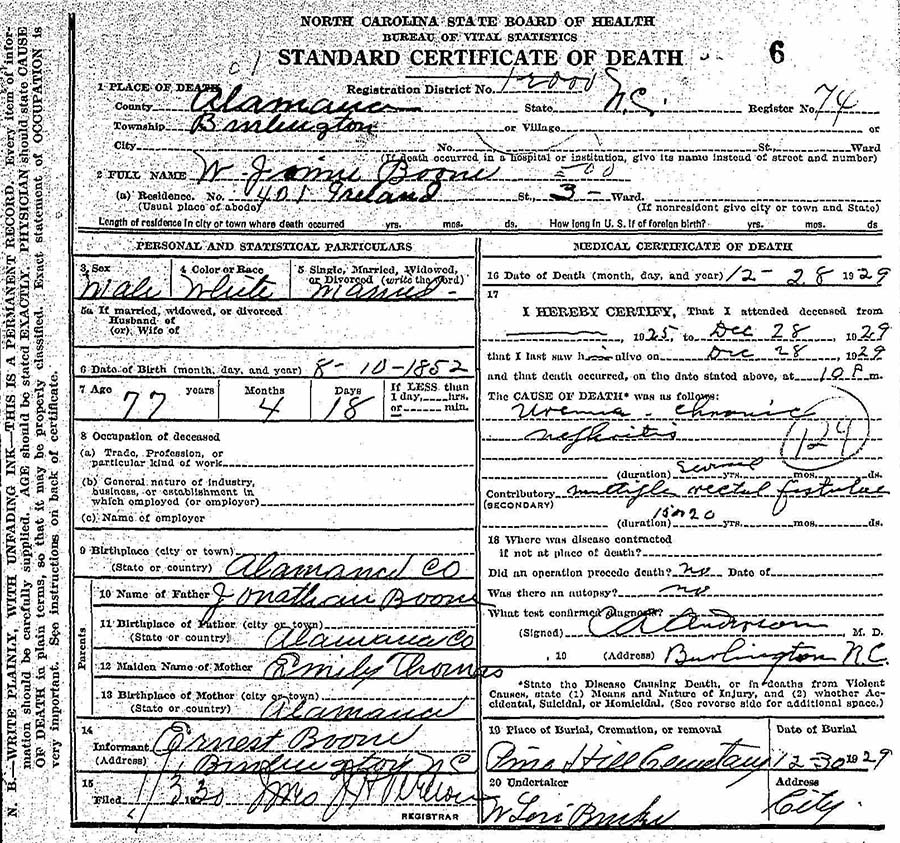 NORTH CAROLINA STATE BOARD OF HEALTH
BUREAU OF VITAL STATISTICS
STANDARD CERTIFICATE OF DEATH 6
1 PLACE OF DEATH Registration District No.
County Alamance State N.C. Register No. 74
Township Burlington or Village or
City No. St., Ward
(If death occurred in a hospital or institution, give its name instead of street and number)
2 FULL NAME W Jimie Boone
(a) Residence. No. 401 Ireland St., 3- Ward.
(Usual place of abode) (If nonresident give city or town and State)
Length of residence in city or town where death occurred yrs. mos. ds. How long in U. S. if of foreign birth? yrs. mos. ds.
PERSONAL AND STATISTICAL PARTICULARS
3 Sex 4 Color or Race 5 Single, Married, Widowed, or Divorced (write the word)
Male White Married
5a If married, widowed, or divorced
Husband of
(or) Wife of
6 Date of Birth (month, day, and year) 8-10-1852
7 Age years Months Days If LESS than
1 day, hrs.
or min.
77 4 18
8 Occupation of deceased
(a) Trade, Profession, or
particular kind of work
(b) General nature of industry,
business, or establishment in
which employed (or employer)
(c) Name of employer
9 Birthplace (city or town)
(State or country) Alamance Co
Parents
10 Name of Father Jonathan Boone
11 Birthplace of Father (city or town)
(State or country) Alamance Co
12 Maiden Name of Mother Emily Thomas
13 Birthplace of Mother (city or town)
(State or country) Alamance
14
Informant Ernest Boone
(Address) Burlington NC
15
Filed 1/3 30 Mrs
REGISTRAR
MEDICAL CERTIFICATE OF DEATH
16 Date of Death (month, day, and year) 12-28 1929
17
I HEREBY CERTIFY, That I attended deceased from
1925, to Dec 28, 1929
that I last saw him alive on Dec 28, 1929
and that death occurred, on the date stated above, at 10 P m.
The CAUSE OF DEATH* was as follows:
Uremia - chronic
nephritis
129
(duration) Several yrs. mos. ds.
Contributory multiple rectal fistulae
(SECONDARY)
(duration) 15 or 20 yrs. mos. ds.
18 Where was disease contracted
if not at place of death?
Did an operation precede death? no Date of
Was there an autopsy? no
What test confirmed diagnosis?
(Signed) Anderson M. D.
, 19 (Address) Burlington N.C.
*State the Disease Causing Death, or in deaths from Violent
Causes, state (1) Means and Nature of Injury, and (2) whether Ac-
cidental, Suicidal, or Homicidal. (See reverse side for additional space.)
19 Place of Burial, Cremation, or removal Date of Burial
Pine Hill Cemetary 12-30 1929
20 Undertaker Address
W Burke City.
N. B.—WRITE PLAINLY, WITH UNFADING INK—THIS IS A PERMANENT RECORD. Every item of infor-
mation should be carefully supplied. AGE should be stated EXACTLY. PHYSICIAN should state CAUSE
OF DEATH in plain terms, so that it may be properly classified. Exact statement of OCCUPATION is
very important. See instructions on back of certificate.